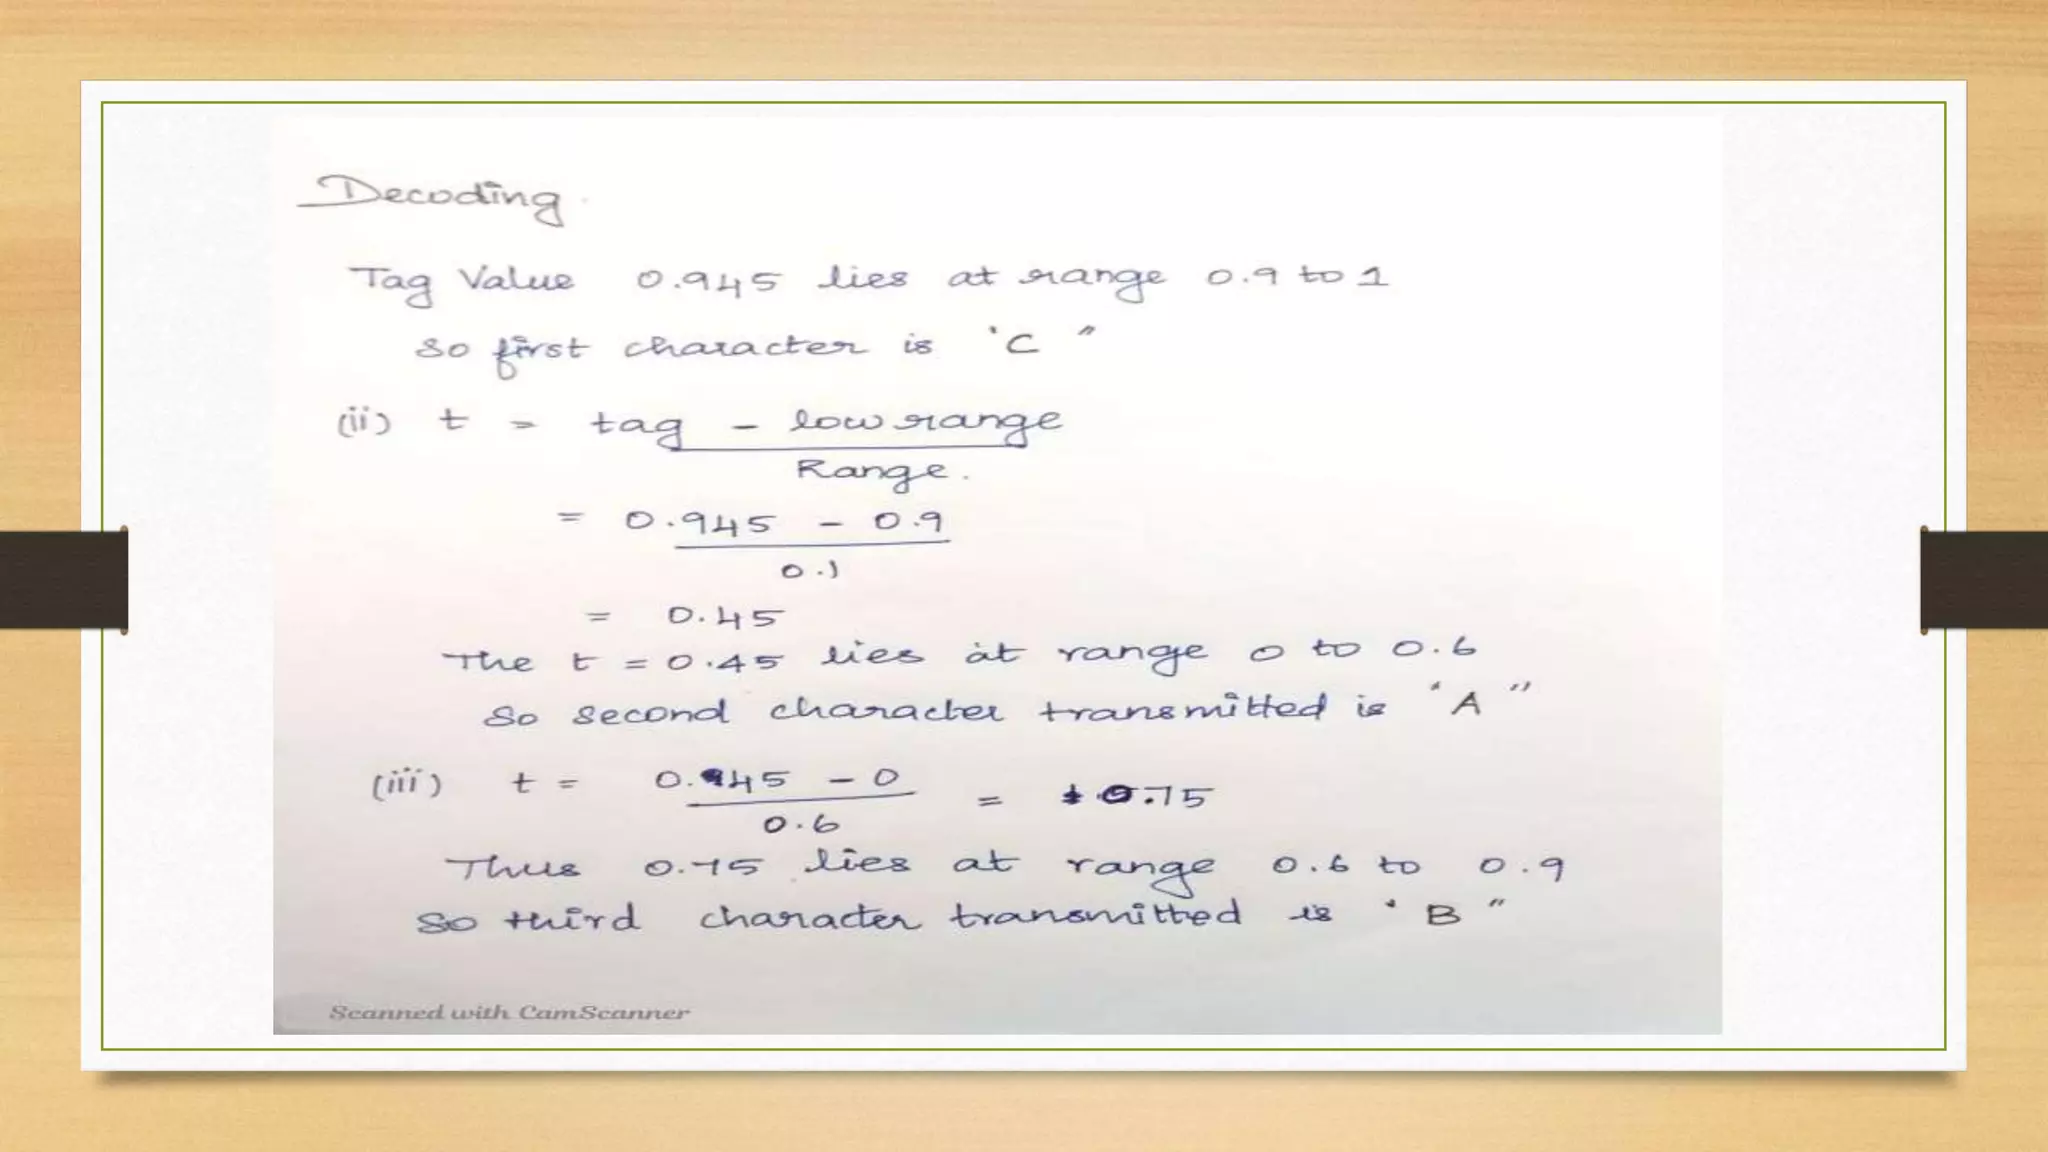 Decoding.
Tag Value 0.945 lies at range 0.9 to 1
So first character is 'C"
(ii) t = tag - low range
Range.
= 0.945 - 0.9
0.1
= 0.45
The t = 0.45 lies at range 0 to 0.6
So second character transmitted is 'A"
(iii) t = 0.45 - 0 = 0.75
0.6
Thus 0.75 lies at range 0.6 to 0.9
So third character transmitted is 'B"
Scanned with CamScanner